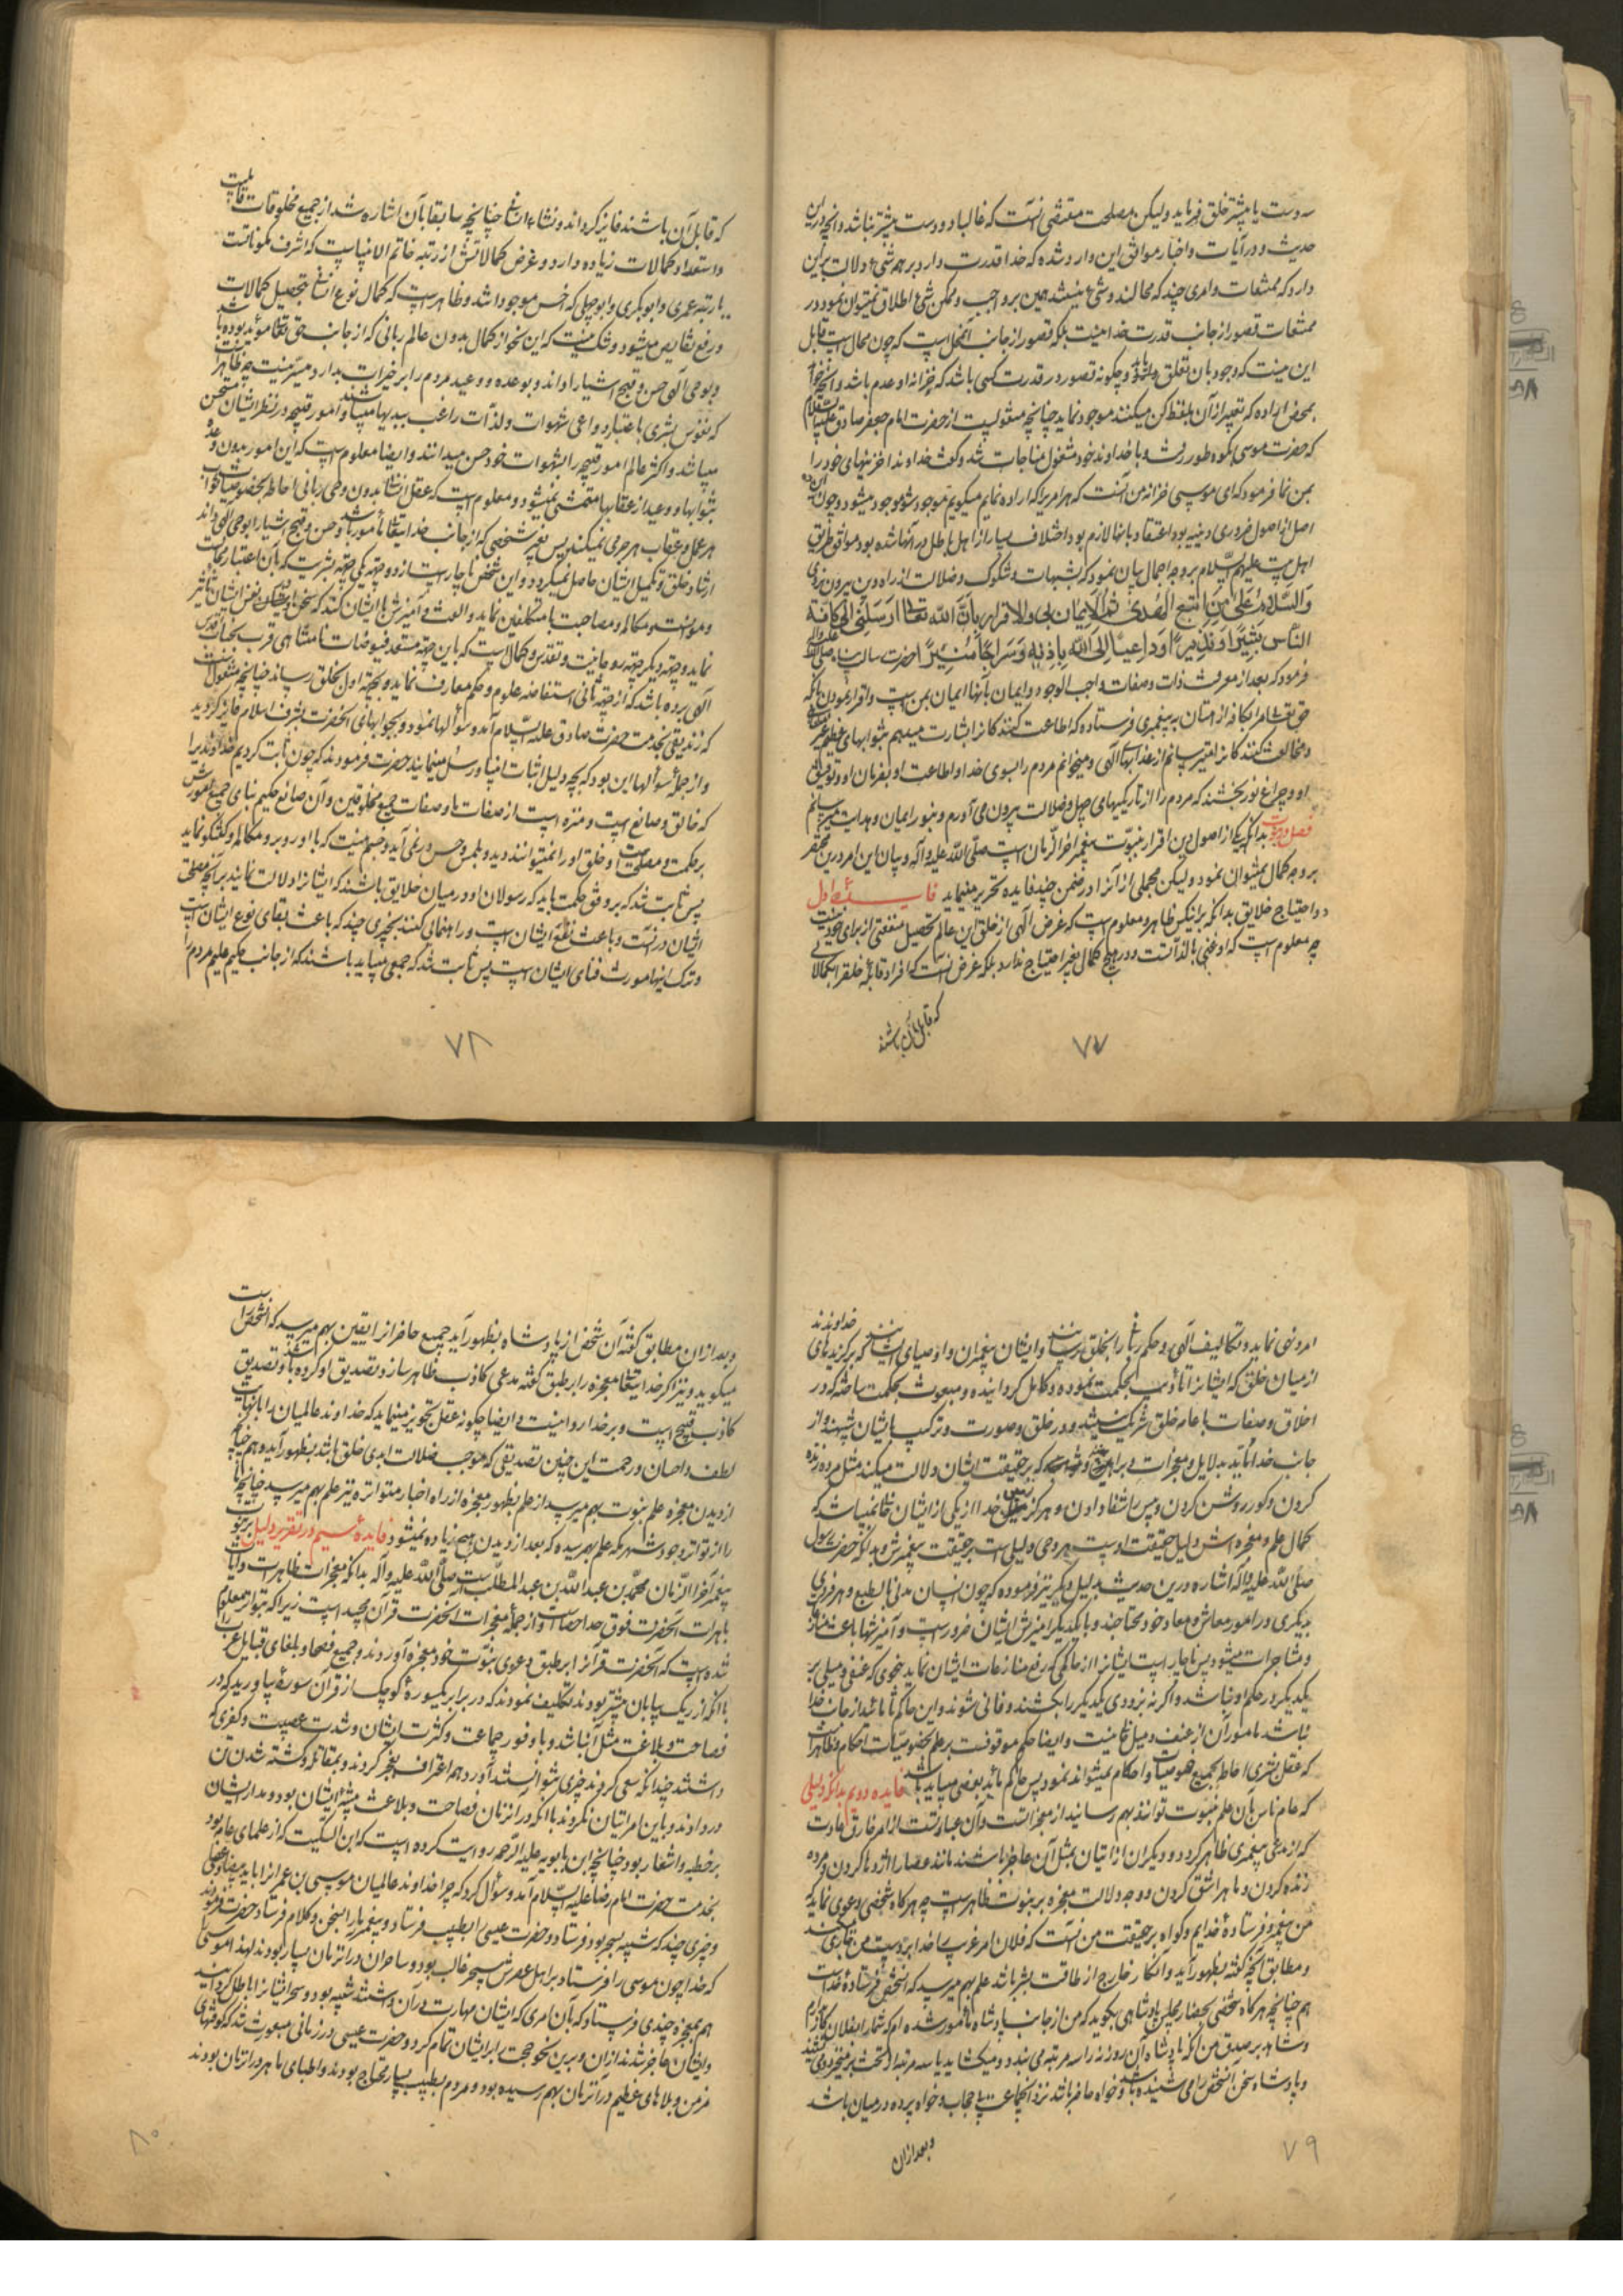 سه وست یا بیشتر خلق فرماید ولیکن مصلحت مقتضی نیست که غالبا دو دست بیشتر نباشد و آنچه در این
حدیث و در آیات و اخبار موافق این وارد شده که خدا قدرت دارد بر همه شیء دلالت بر این
دارد که ممتنعات و امری چند که محالند و شیء نیستند همین بر واجب و ممکن شیء اطلاق میتوان نمود و در
ممتنعات قصور از جانب قدرت خدا نیست بلکه قصور از جانب آن محل است که چون محال است قابل
این نیست که وجود بآن تعلق داشته باشد و چگونه قصور در قدرت کسی باشد که خزانه او عدم باشد و آنچه خواهد
بمحض اراده که تعبیر از آن بلفظ کن میکنند موجود نماید چنانچه منقولست از حضرت امام جعفر صادق علیه السلام
که حضرت موسی بکوه طور رفت و با خداوند خود مشغول مناجات شد و گفت خداوندا خزینهای خود را
بمن نما فرمود که ای موسی خزانه من آنست که هر امریرا که اراده نمایم میگویم موجود شو موجود میشود و چون این
اصل از اصول ضروری دینیه بود و اعتقاد بانها لازم بود و اختلاف بسیار از اهل باطل در آنها شده بود موافق طریق
اهل بیت علیهم السلام بر وجه اجمال بیان نمود که بشبهات و شکوک و ضلالت از راه دین بیرون نروی
وَالسَّلامُ عَلی مَنِ اتَّبَعَ الهُدی ثم الایمان بی والاقرار بان الله تعالی ارسلنی الی کافة
الناس بشیرا و نذیرا و داعیا الی الله باذنه و سراجا منیرا حضرت رسالت پناه صلی الله علیه و آله
فرمود که بعد از معرفت ذات و صفات واجب الوجود و ایمان بآنها ایمان بمن است و اقرار نمودن بآنکه
حق تعالی مرا بکافه از امتان به پیغمبری فرستاده که اطاعت کنندگانرا بشارت میدهم بثوابهای عظیم
و مخالفت کنندگانرا بترسانم از عذابهای الهی و میخوانم مردم را بسوی خدا و اطاعت او بفرمان او و توفیق
او و چراغ نور بخشنده که مردم را از تاریکیهای جهل و ضلالت بیرون می آورم و بنور ایمان و هدایت میرسانم
بدانکه یکی از اصول دین اقرار بنبوت پیغمبر آخر الزمان است صلی الله علیه و آله و بیان این امر درین مختصر
بر وجه کمال نمیتوان نمود و لیکن مجملی از آنرا در ضمن چند فایده تحریر مینماید فایده اول
در احتیاج خلایق بدانکه براینکه ظاهر و معلوم است که غرض الهی از خلق این عالم تحصیل منفعتی از برای خود نیست
چه معلوم است که او غنی بالذاتست و در هیچ کمال بغیر احتیاج ندارد بلکه غرض آنست که افراد قابله خلق را بکمالاتی
که قابل آن باشند
۷۷
که قابل آن باشند فایز گرداند و نشاء انسانی چنانچه سابقا بآن اشاره شد از جمیع مخلوقات قابلیت
و استعداد کمالات زیاده دارد و عرض کمالاتش از رتبه خاتم الانبیاست که اشرف مکوناتست
تا رتبه عمری و ابوبکری و ابوجهلی که اخس موجودات باشد و ظاهر است که کمال نوع انسانی بتحصیل کمالات
و رفع نقایص میشود و شک نیست که این نحو از کمال بدون عالم ربانی که از جانب حق تعالی مؤید بوده باشد
و بوحی الهی حسن و قبح اشیا را داند و بوعده و وعید مردم را بر خیرات بدارد میسر نیست چه ظاهر است
که نفوس بشری باعتبار دواعی شهوات و لذات راغب ببدیها میباشند و امور قبیحه در نظر ایشان مستحسن
میباشد و اکثر عالم امور قبیحه را بشهوات خود حسن میدانند و ایضا معلوم است که این امور بدون وعد
بثوابها و وعید از عقابها متمشی نمیشود و معلوم است که عقل انسانی بدون وحی ربانی احاطه بخصوصیات ثواب
هر عمل و عقاب هر جرمی نمیکند پس بغیر شخصی که از جانب خدایتعالی مأمور باشد و حسن و قبح اشیا را بوحی الهی داند
ارشاد خلق و تکمیل ایشان حاصل نمیگردد و این شخص ناچار است از دو جهة یکی جهة بشریت که بآن اعتبار مجالست
و مؤانست و مکالمه و مصاحبت با متکلفین نماید و الفت و آمیزش با ایشان کند که سخن بایشان در نفس ایشان تأثیر
نماید و جهة دیگر جهة روحانیت و تقدس و کمال است که باین جهة مستعد فیوضات نامتناهی قرب بجناب اقدس
الهی برده باشد که از جهة ثانی استفاضه علوم و حکم و معارف نماید و بجهة اول بخلق رساند چنانچه منقول است
که زندیقی بخدمت حضرت صادق علیه السلام آمد و سؤالها نمود و بجوابهای آنحضرت بشرف اسلام فایز گردید
و از جمله سؤالها این بود که بچه دلیل اثبات انبیا و رسل مینمایند حضرت فرمودند که چون ثابت کردیم خداوندیرا
که خالق و صانع است و منزه است از صفات ما و صفات جمیع مخلوقین و آن صانع حکیم بنای جمیع امورش
بر حکمت و مصلحت است و خلق او را نمیتوانند دید و بلمس و حس در نمی آید و جسم نیست که با او روبرو مکالمه و گفتگو نماید
پس ثابت شد که بر وفق حکمت باید که رسولان او در میان خلایق باشند که ایشانرا دلالت نمایند بر آنچه مصلحت
ایشان در آنست و باعث نفع ایشان است و راهنمائی کنند بچیزی چند که باعث بقای نوع ایشان است
و ترک اینها مورث فنای ایشان است پس ثابت شد که جمعی میباید باشند که از جانب حکیم علیم مردم را
۷۸
امر و نهی نماید و تکالیف الهی و حکم ربانی را بخلق رسانند و ایشان پیغمبران و اوصیای ایشانند که برگزیدهای خداوندند
از میان خلق که ایشانرا تأدیب بحکمت نموده و کامل گردانیده و مبعوث بحکمت ساخته که در
اخلاق و صفات با عامه خلق شریک نیستند و در خلق و صورت و ترکیب بایشان شبیهند و از
جانب خدا مؤید بدلایل و معجزات و براهین و شواهد که بر حقیقت ایشان دلالت میکند مثل مرده زنده
کردن و کور روشن کردن و پیس را شفا دادن و هرگز زمین خدا از یکی از ایشان خالی نمیباشد که
کمال علم و معجزه اش دلیل حقیقت اوست هر وصی دلیلی است بر حقیقت پیغمبرش و بدانکه حضرت رسول
صلی الله علیه و آله اشاره درین حدیث بدلیل دیگر نیز فرموده که چون انسان مدنی بالطبع و هر فردی
بدیگری در امور معاش و معاد خود محتاجند و با یکدیگر آمیزش ایشان ضرور است و آمیزشها باعث منازعات
و مشاجرات میشود پس ناچار است ایشانرا از حاکمی که رفع منازعات ایشان نماید بنحوی که عنفی و میلی بر
یکدیگر در حکم او نباشد و اگر نه بزودی یکدیگر را بکشند و فانی شوند و این حاکم تا مؤید از جانب خدا
نباشد مأمور آن از عنف و میل خالی نیست و ایضا حکم موقوفست بر علم بخصوصیات احکام و ظاهر است
که عقل بشری احاطه بجمیع خصوصیات و احکام نمیتواند نمود پس حاکم مؤید بوحی میباید باشد فایده دویم بدانکه دلیلی
که عامه ناس بآن علم بنبوت توانند بهم رسانید از معجزاتست و آن عبارتست از امر خارق عادت
که از مدعی پیغمبری ظاهر گردد و دیگران از اتیان بمثل آن عاجز باشند مانند عصا را اژدها کردن و مرده
زنده کردن و ماه را شق کردن و وجه دلالت معجزه بر نبوت ظاهر است چه هرگاه شخصی دعوی نماید که
من پیغمبر و فرستاده خدایم و گواه بر حقیقت من آنست که فلان امر غریب را خدا بر دست من جاری میکند
و مطابق آنچه گفته بظهور آید و آن کار خارج از طاقت بشر باشد علم بهم میرسد که آن شخص فرستاده خداست
هم چنانچه هرگاه شخصی بحضار مجلس پادشاهی بگوید که من از جانب پادشاه مأمور شده ام که شما را بفلان کار بدارم
و شاهد بر صدق من آنکه پادشاه آن روزنه را سه مرتبه می بندد و میگشاید یا سه مرتبه از تخت بر میخیزد و می نشیند
و پادشاه سخن آن شخص را می شنیده باشد و خواه حاضر باشد نزد آنجماعت بی حجاب و خواه پرده در میان باشد
و بعد از آن
۷۹
و بعد از آن مطابق گفته آن شخص از پادشاه بظهور آید جمیع حاضرانرا یقین بهم میرسد که آن شخص راست
میگوید و نیز اگر خدایتعالی معجزه را بر طبق گفته مدعی کاذب ظاهر سازد تصدیق او کرده باشد و تصدیق
کاذب قبیح است و بر خدا روا نیست و ایضا چگونه عقل تجویز مینماید که خداوند عالمیان را با نهایت
لطف و احسان و رحمت این چنین تصدیقی که موجب ضلالت ابدی خلق باشد بظهور آید و هم چنانچه
از دیدن معجزه علم بنبوت بهم میرسد از علم بظهور معجزه از راه اخبار متواتره نیز علم بهم میرسد چنانچه
را از تواتر وجود شهر مکه علم بهم رسیده که بعد از دیدن هیچ زیاده نمیشود فایده سیم در تقریر دلیل بر نبوت
پیغمبر آخر الزمان محمد بن عبد الله بن عبد المطلب است صلی الله علیه و آله بدانکه معجزات ظاهرات و آیات
باهرات آنحضرت فوق حد احصاست و از جمله معجزات آنحضرت قرآن مجید است زیرا که بتواتر معلوم
شده است که آنحضرت قرآنرا بر طبق دعوی نبوت خود معجزه آوردند و جمیع فصحا و بلغای قبایل عرب را
با آنکه از ریگ بیابان بیشتر بودند تکلیف نمودند که در برابر یکسوره کوچک از قرآن سوره بیاورید که در
فصاحت و بلاغت مثل آن باشد و با وفور جماعت و کثرت ایشان و شدت عصبیت و کفری که
داشتند چندانکه سعی کردند چیزی نتوانستند آورد و همه اعتراف بعجز کردند و بمقاتله و کشته شدن تن
در دادند و باین امر اتیان نکردند با آنکه در آنزمان فصاحت و بلاغت پیشه ایشان بود و مدار ایشان
بر خطبه و اشعار بود چنانچه ابن بابویه علیه الرحمه روایت کرده است که ابن السکیت که از علمای عامه بود
بخدمت حضرت امام رضا علیه السلام آمد و سؤال کرد که چرا خداوند عالمیان موسی بن عمرانرا با ید بیضا و عصا
و چیزی چند که شبیه بسحر بود فرستاد و حضرت عیسی را بطبیب فرستاد و پیغمبر ما را بسخن و کلام فرستاد حضرت فرمودند
که خدا چون موسی را فرستاد بر اهل عصرش سحر غالب بود و ساحران در آنزمان بسیار بودند لهذا موسی
هم بمعجزه چندی فرستاد که بآن امری که ایشان مهارت در آن داشتند شبیه بود و سحر ایشانرا باطل گردانید
و ایشان عاجز شدند از آن و برین نحو حجت را بر ایشان تمام کرد و حضرت عیسی در زمانی مبعوث شد که کوفتهای
مزمن و بلاهای عظیم در آنزمان بهم رسیده بود و مردم بطبیب بسیار محتاج بودند و اطبای ماهر در آنزمان بودند
۸۰